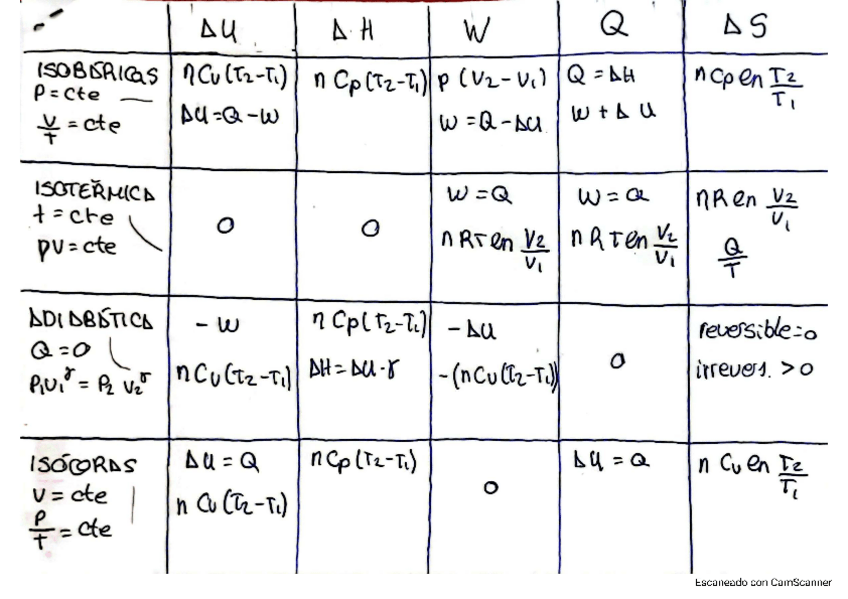 ΔU ΔH W Q ΔS
ISOBÁRICAS
P=cte
V/T = cte
nCv(T2-T1)
ΔU=Q-W
nCp(T2-T1)
p(V2-V1)
W=Q-ΔU
Q=ΔH
W+ΔU
nCp ln T2/T1
ISOTÉRMICA
t=cte
pV=cte
0
0
W=Q
nRT ln V2/V1
W=Q
nRT ln V2/V1
nR ln V2/V1
Q/T
ADIABÁTICA
Q=0
P1V1^γ = P2 V2^γ
-W
nCv(T2-T1)
nCp(T2-T1)
ΔH=ΔU·γ
-ΔU
-(nCv(T2-T1))
0
reversible=0
irrevers. >0
ISÓCORAS
V=cte
P/T = cte
ΔU=Q
nCv(T2-T1)
nCp(T2-T1)
0
ΔU=Q
nCv ln T2/T1
Escaneado con CamScanner